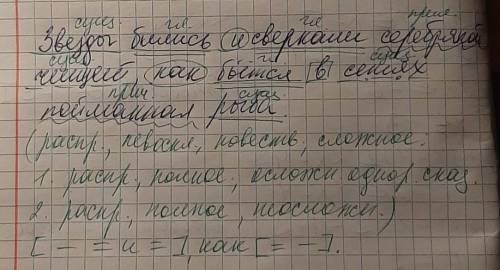 сущ. гл. гл. прил.
Звезды бились и сверкали серебряной
сущ. гл. сущ.
чешуей, как бьётся в сетях
прич. сущ.
пойманная рыба.
(распр., невоскл, повеств, сложное.
1. распр, полное, осложн. однор. сказ.
2. распр, полное, неосложн.)
[ — = и = ], как [ = — ].